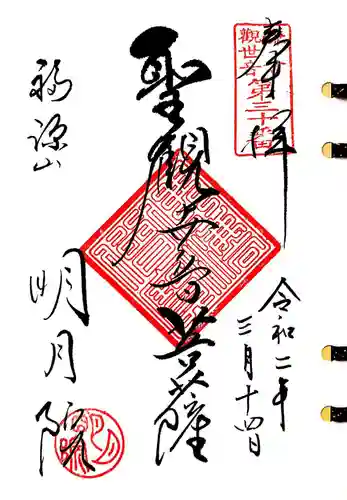 奉拝
観世音第三十番
聖観世音菩薩
令和二年
三月十四日
福源山
明月院